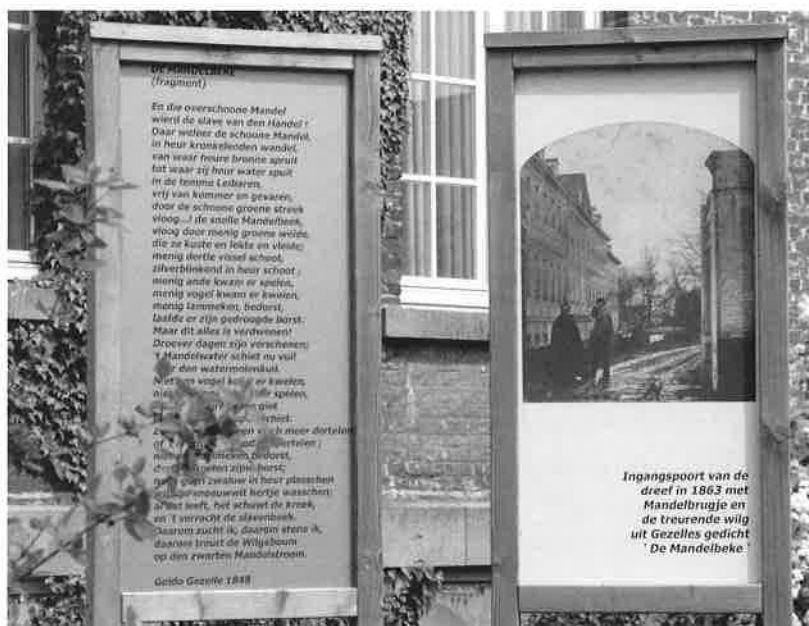 DE MANDELBEKE
(fragment)
En die overschoone Mandel
wierd de slave van den Handel !
Daar weiner de schoone Mandel,
in heur kronkelenden wandel,
van waar heure bronne spruit
tot waar zij heur water spuit
in de temme Leibaren,
vrij van kommer en gevaren,
door de schoone groene streek
vloog...! de snelle Mandelbeek,
vloog door menig groene weide,
die ze kuste en lekte en vleide;
menig dertle vissel school,
zilverblinkend in heur schoot ;
menig ande kwam er spelen,
menig vogel kwam er kwelen,
menig lammeken, bedorst,
laafde er zijn gedroogde borst.
Maar dit alles is verdwenen!
Droever dagen zijn verschenen;
't Mandelwater schiet nu vuil
den watermolenkuil.
vogel er kwelen,
spelen,
giet
meer dertelen
of
bedorst,
zijne borst;
geen zwaluw in heur plasschen
hertje wasschen;
al dat leeft, het schuwt de kreek,
en 't verracht de slavenbeek.
Daarom zucht ik, daarom stene ik,
daarom treurt de Wilgeboom
op den zwarten Mandelstroom.
Guido Gezelle 1848
Ingangspoort van de
dreef in 1863 met
Mandelbrugje en
de treurende wilg
uit Gezelles gedicht
' De Mandelbeke '